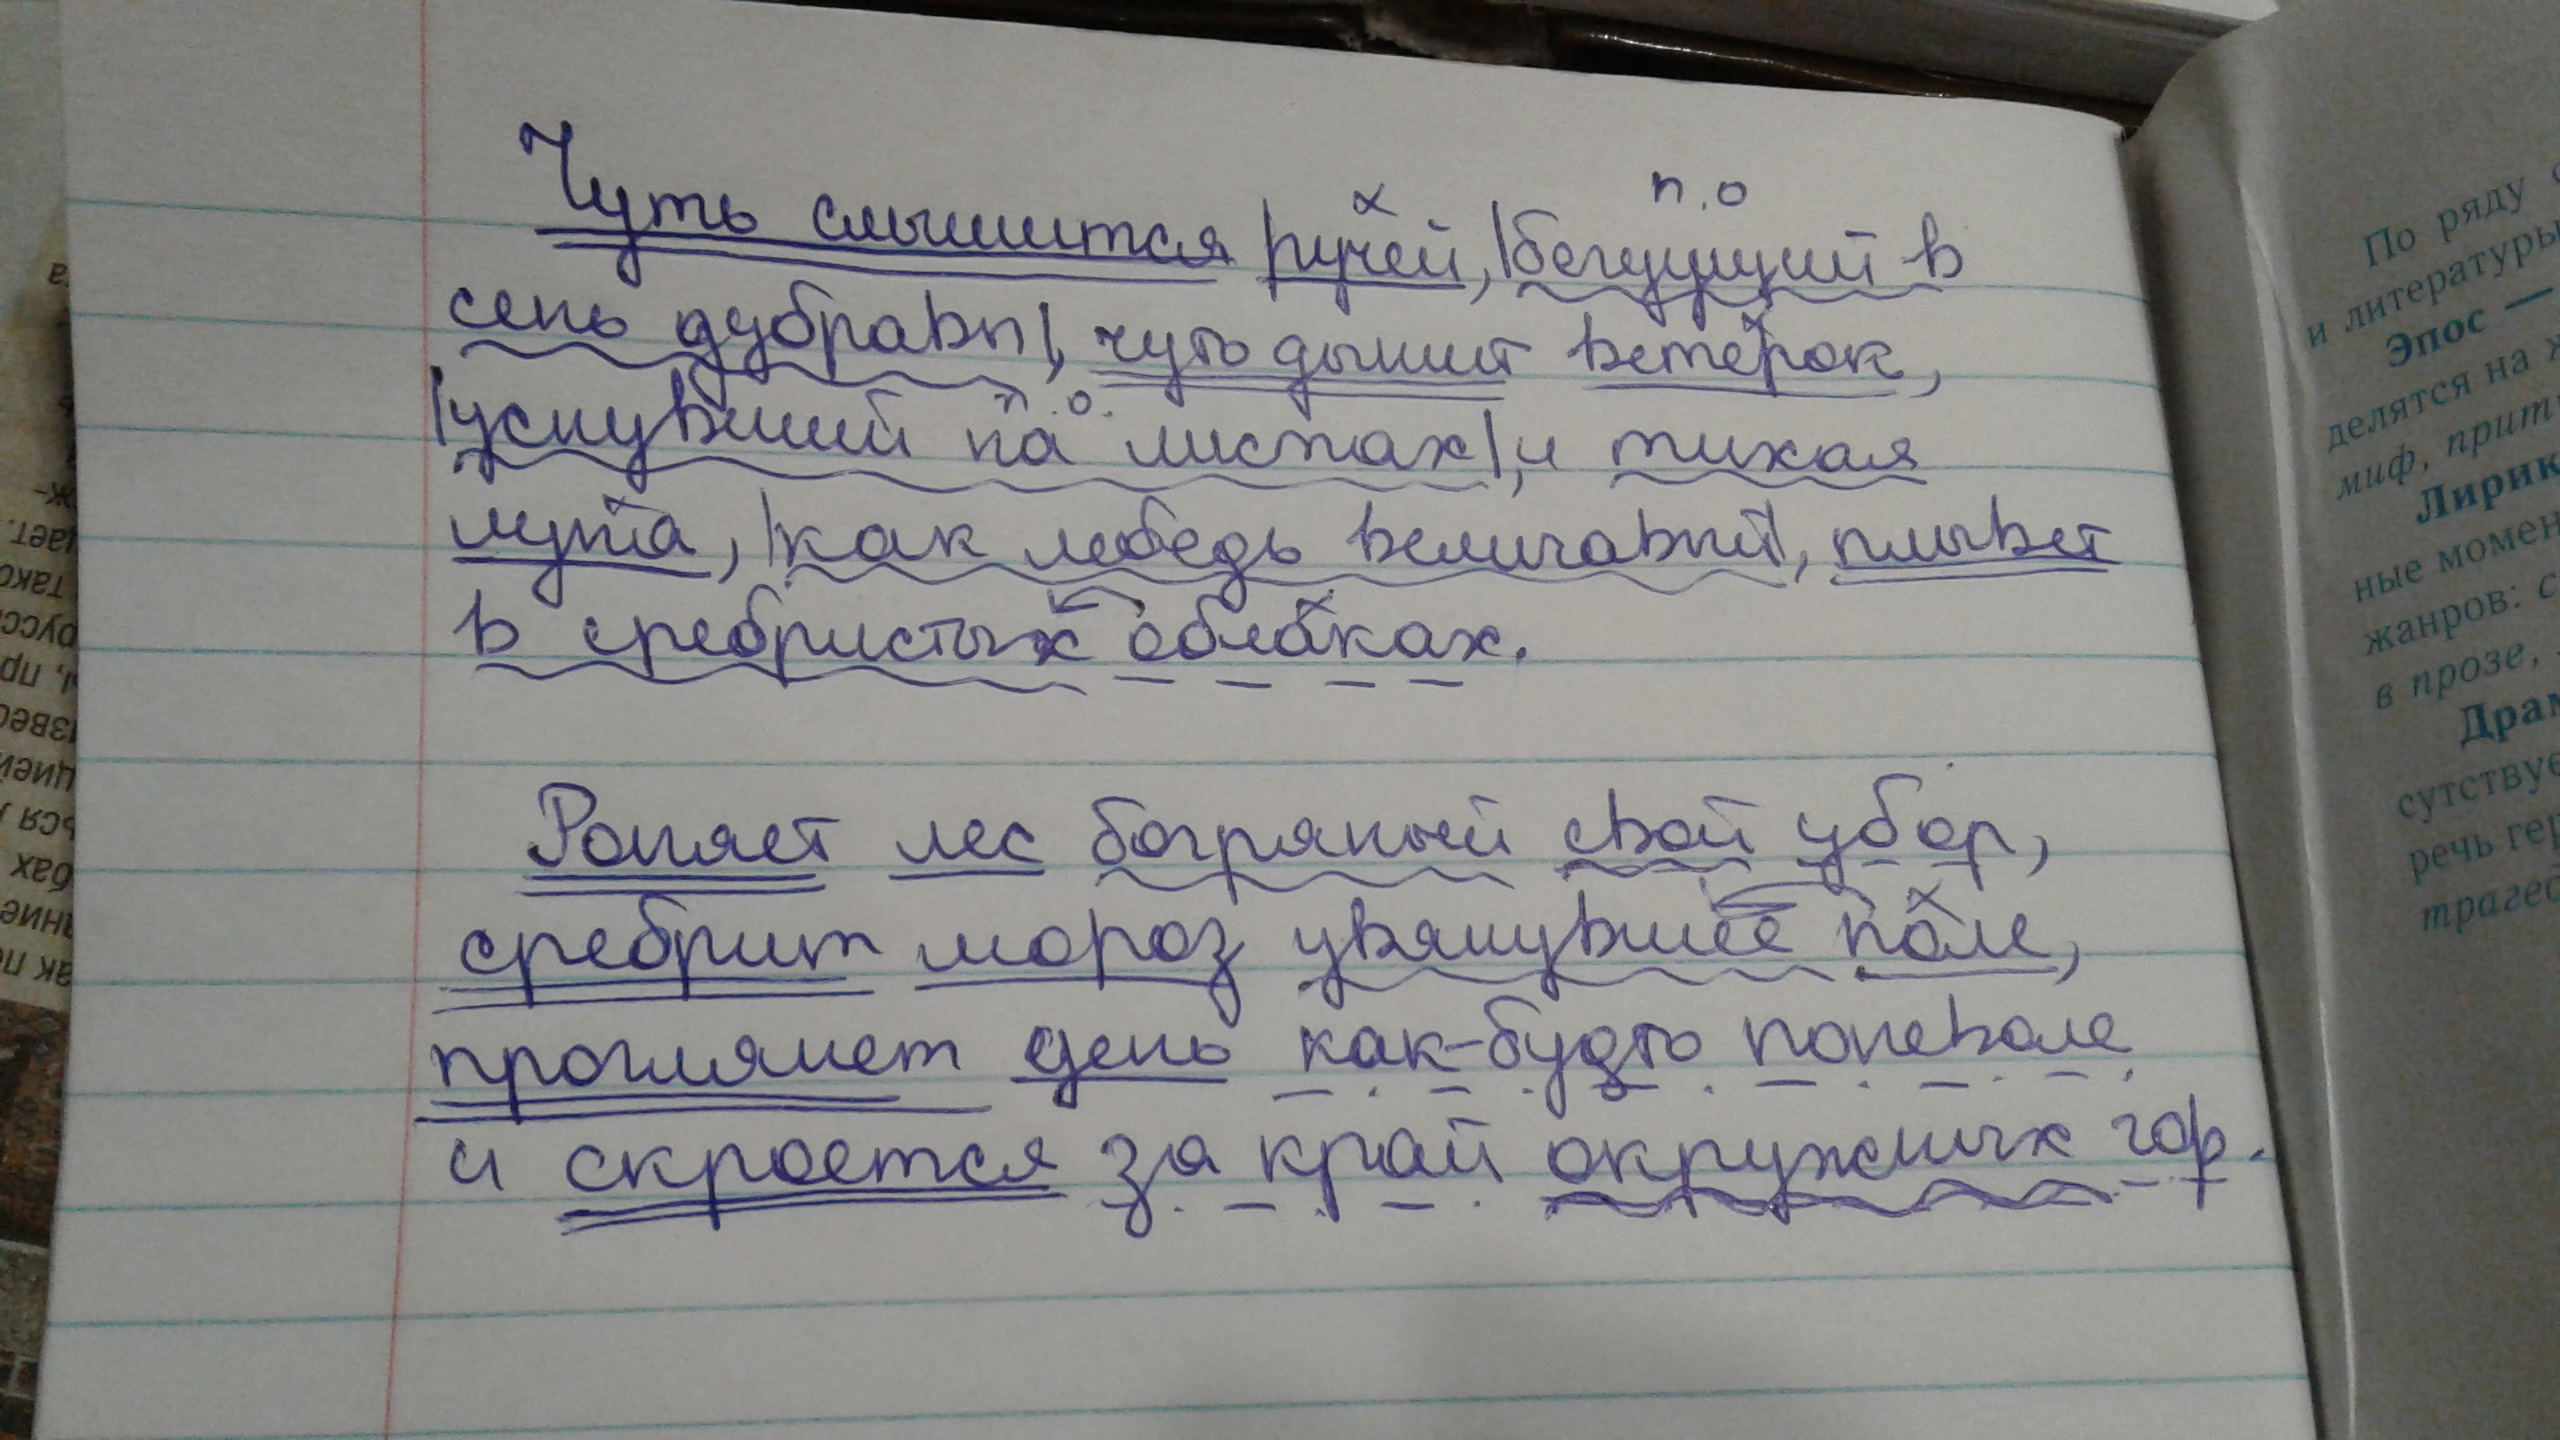 Чуть слышится ручей, бегущий в
х
п.о
сень дубравы, чуть дышит ветерок,
х
уснувший на листах, и тихая
п.о.
луна, как лебедь величавый, плывет
в сребристых облаках.
х
Роняет лес богряный свой убор,
сребрит мороз увянувшее поле,
х
проглянет день как-будто поневоле
и скроется за край окружных гор.
По ряду
и литературы
Эпос —
делятся на
миф, притч
Лирик
ные момен
жанров: с
в прозе,
Драм
сутствуе
речь гер
трагед